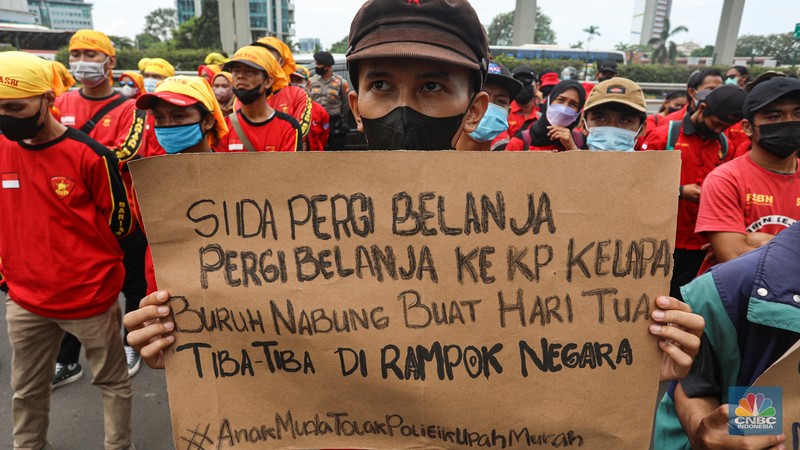 SIIDA PERGI BELANJA
PERGI BELANJA KE KP KELAPA
BURUH NABUNG BUAT HARI TUA
TIBA-TIBA DI RAMPOK NEGARA
#AnakMudaTolakPolitikUpahMurah
FSBN
CNBC
INDONESIA